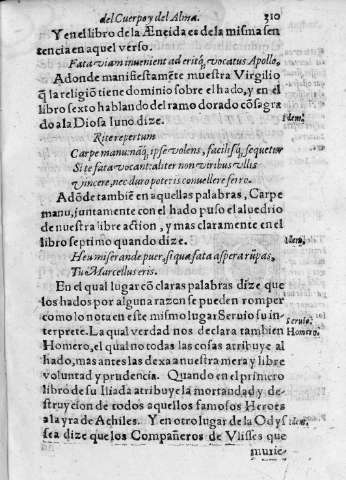 del Cuerpo y del Alma. 310
Y en el libro de la Æneida es de la misma sen
tencia en aquel verso.
Fata viam inuenient aderitq; vocatus Apollo.
Adonde manifiestamẽte muestra Virgilio
q̃ la religiõ tiene dominio sobre el hado, y en el
libro sexto hablando del ramo dorado cõsagra
do a la Diosa Iuno dize.
Idem.
Rite repertum
Carpe manu: nãq; ipse volens, facilisq; sequetur
Si te fata vocant: aliter non viribus vllis
vincere, nec duro poteris conuellere ferro.
Adõde tambiẽ en aquellas palabras, Carpe
manu, juntamente con el hado puso el aluedrio
de nuestra libre action, y mas claramente en el
libro septimo quando dize.
Idem.
Heu miserande puer, si qua fata aspera rũpas,
Tu Marcellus eris.
En el qual lugar cõ claras palabras dize que
los hados por alguna razon se pueden romper
como lo nota en este mismo lugar Seruio su in
Seruio.
terprete. La qual verdad nos declara tambien
Homero.
Homero, el qual no todas las cosas atribuye al
hado, mas antes las dexa a nuestra mera y libre
voluntad y prudencia. Quando en el primero
libro de su Iliada atribuye la mortandad y de-
struycion de todos aquellos famosos Heroes
a la yra de Achiles. Y en otro lugar de la Odys
Idem.
sea dize que los Compañeros de Vlisses que
murie